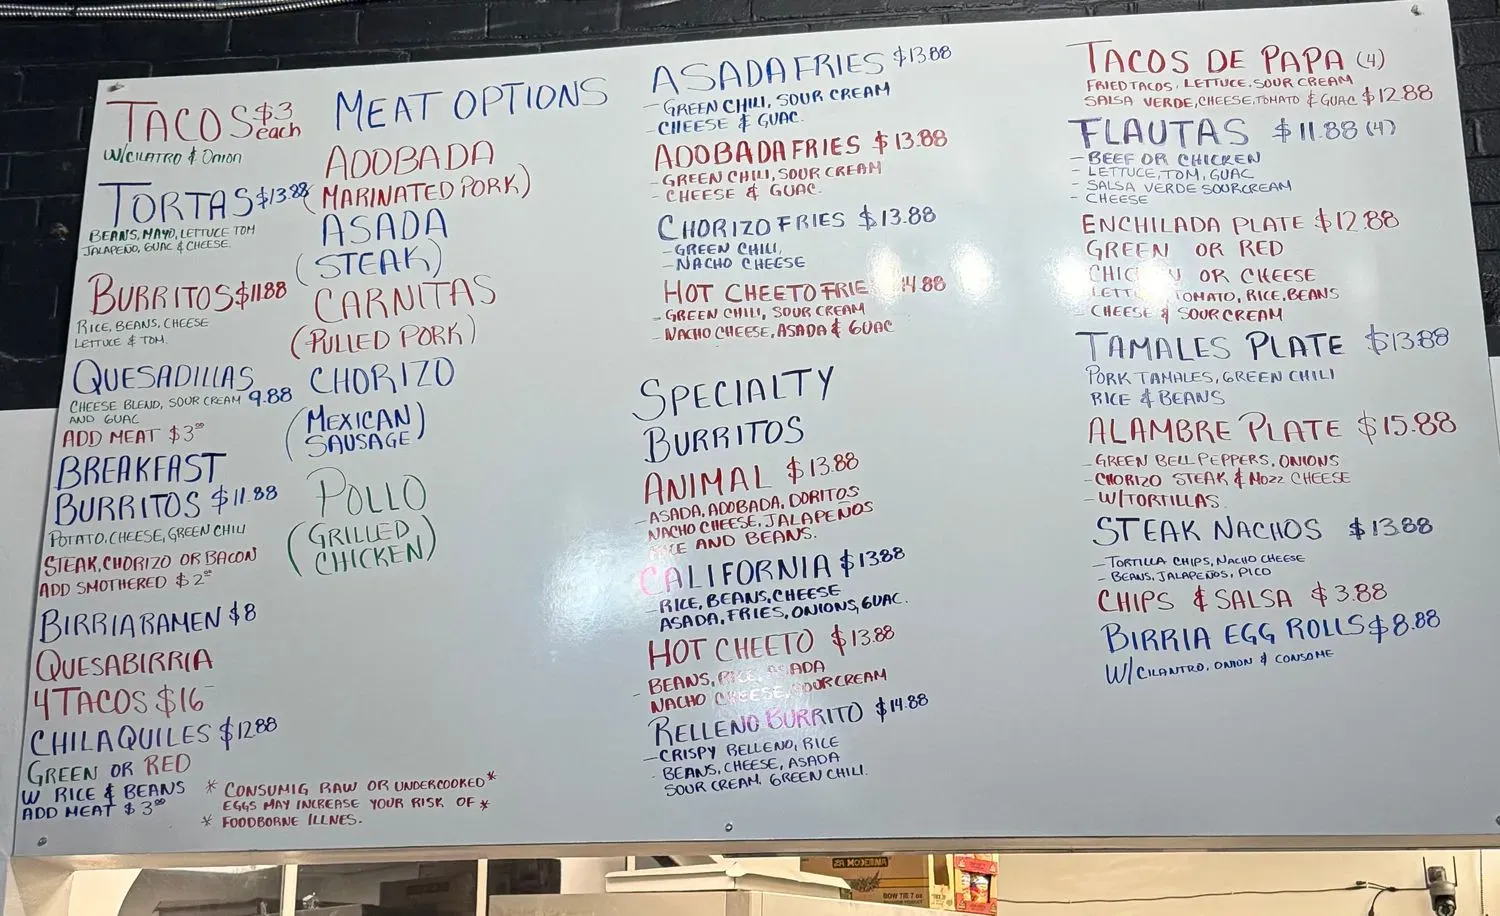 TACOS $3 each
W/CILATRO & Onion
TORTAS $13.88
BEANS, MAYO, LETTUCE TOM
JALAPEÑO, GUAC & CHEESE.
BURRITOS $11.88
RICE, BEANS, CHEESE
LETTUCE & TOM.
QUESADILLAS
CHEESE BLEND, SOUR CREAM 9.88
AND GUAC
ADD MEAT $3⁰⁰
BREAKFAST
BURRITOS $11.88
POTATO, CHEESE, GREEN CHILI
STEAK, CHORIZO OR BACON
ADD SMOTHERED $2⁰⁰
BIRRIA RAMEN $8
QUESABIRRIA
4 TACOS $16
CHILAQUILES $12.88
GREEN OR RED
W RICE & BEANS
ADD MEAT $3⁰⁰
MEAT OPTIONS
ADOBADA
(MARINATED PORK)
ASADA
(STEAK)
CARNITAS
(PULLED PORK)
CHORIZO
(MEXICAN
SAUSAGE)
POLLO
(GRILLED
CHICKEN)
* CONSUMIG RAW OR UNDERCOOKED *
EGGS MAY INCREASE YOUR RISK OF *
* FOODBORNE ILLNES.
ASADA FRIES $13.88
- GREEN CHILI, SOUR CREAM
- CHEESE & GUAC.
ADOBADA FRIES $13.88
- GREEN CHILI, SOUR CREAM
- CHEESE & GUAC.
CHORIZO FRIES $13.88
- GREEN CHILI,
- NACHO CHEESE
HOT CHEETO FRIE 14.88
- GREEN CHILI, SOUR CREAM
- NACHO CHEESE, ASADA & GUAC
SPECIALTY
BURRITOS
ANIMAL $13.88
- ASADA, ADOBADA, DORITOS
NACHO CHEESE, JALAPEÑOS
RICE AND BEANS.
CALIFORNIA $13.88
- RICE, BEANS, CHEESE
ASADA, FRIES, ONIONS, GUAC.
HOT CHEETO $13.88
- BEANS, RICE, ASADA
NACHO CHEESE, SOUR CREAM
RELLENO BURRITO $14.88
- CRISPY RELLENO, RICE
- BEANS, CHEESE, ASADA
SOUR CREAM, GREEN CHILI.
TACOS DE PAPA (4)
FRIED TACOS, LETTUCE, SOUR CREAM
SALSA VERDE, CHEESE, TOMATO & GUAC $12.88
FLAUTAS $11.88 (4)
- BEEF OR CHICKEN
- LETTUCE, TOM, GUAC
- SALSA VERDE SOURCREAM
- CHEESE
ENCHILADA PLATE $12.88
GREEN OR RED
CHICKEN OR CHEESE
LETTUCE, TOMATO, RICE, BEANS
CHEESE & SOURCREAM
TAMALES PLATE $13.88
PORK TAMALES, GREEN CHILI
RICE & BEANS
ALAMBRE PLATE $15.88
- GREEN BELL PEPPERS, ONIONS
- CHORIZO STEAK & MOZZ CHEESE
- W/TORTILLAS
STEAK NACHOS $13.88
- TORTILLA CHIPS, NACHO CHEESE
- BEANS, JALAPEÑOS, PICO
CHIPS & SALSA $3.88
BIRRIA EGG ROLLS $8.88
W/ CILANTRO, ONION & CONSOME
LA MODERNA
BOW TIE 7 oz